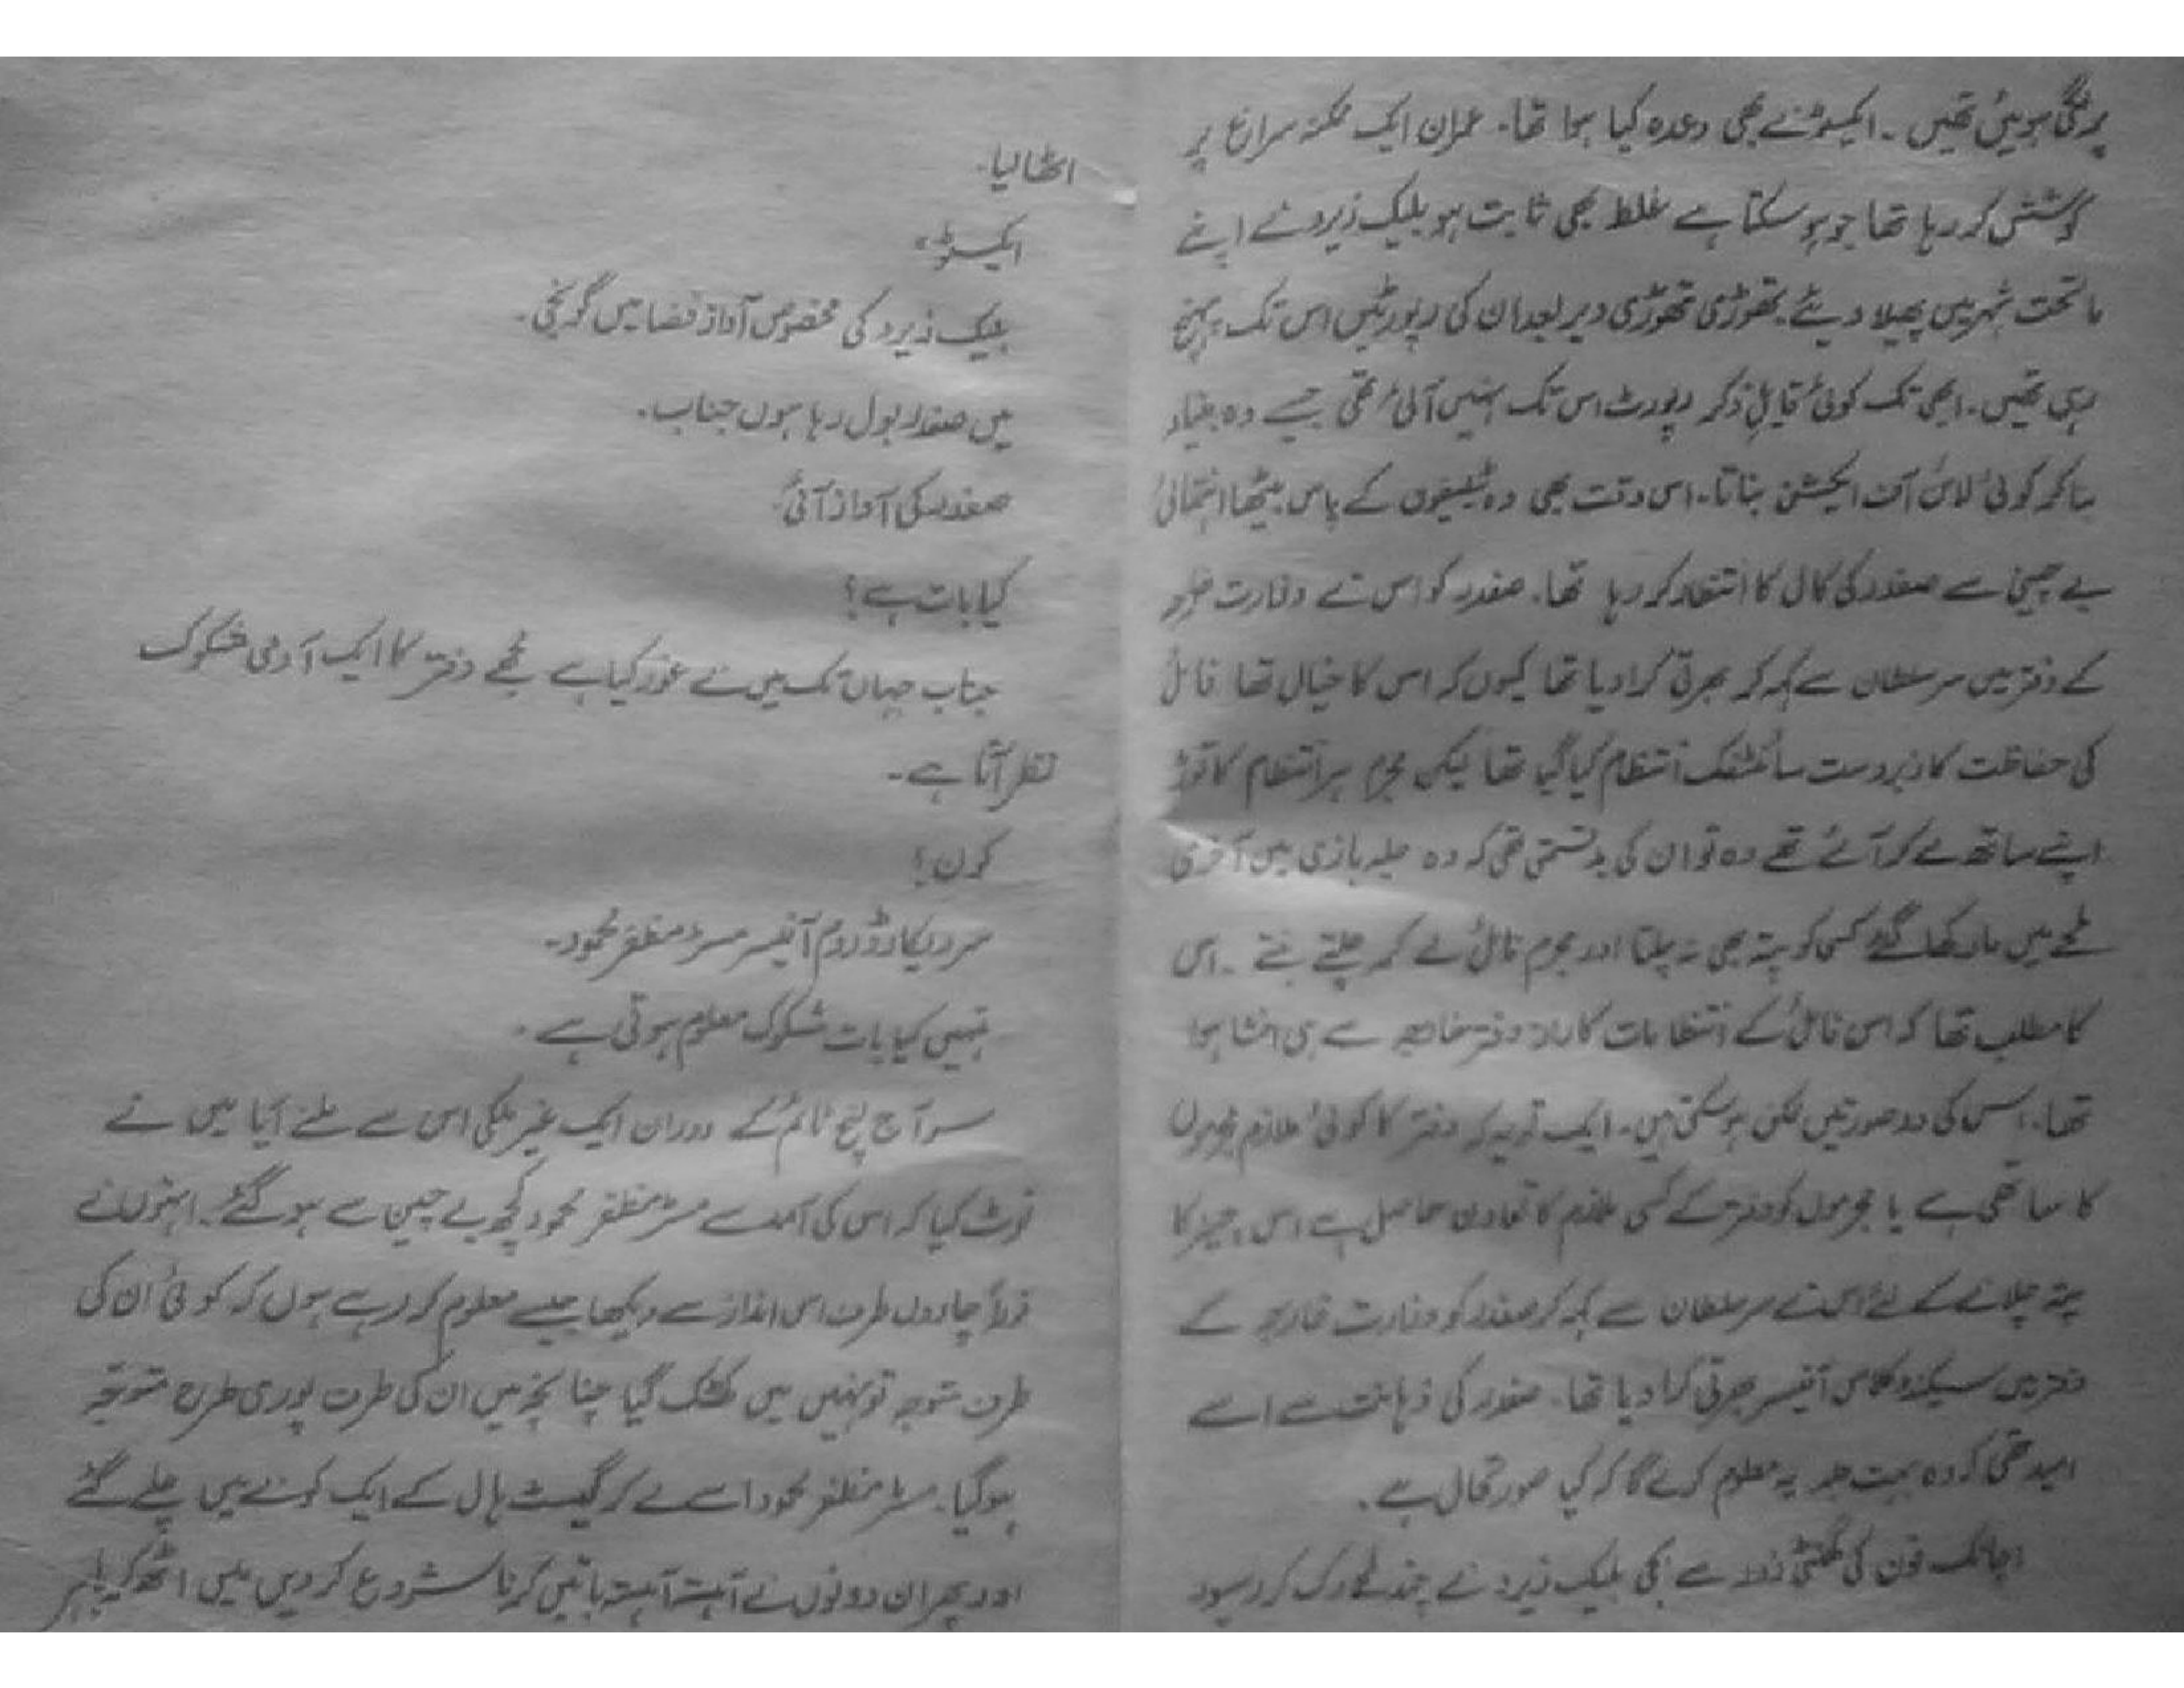 پر لگی ہوئیں تھیں۔ ایکسٹو نے بھی وعدہ کیا ہوا تھا۔ عمران ایک ممکنہ سراغ پر
کوشش کر رہا تھا جو ہو سکتا ہے غلط بھی ثابت ہو بلیک زیرو نے اپنے
ماتحت شہر میں پھیلا دیئے۔ تھوڑی تھوڑی دیر بعد ان کی رپورٹیں اس تک پہنچ
رہی تھیں۔ ابھی تک کوئی قابلِ ذکر رپورٹ اس تک نہیں آئی تھی جسے وہ بنیاد
بنا کر کوئی لائن آف ایکشن بناتا۔ اس وقت بھی وہ ٹیلیفون کے پاس بیٹھا انتہائی
بے چینی سے صفدر کی کال کا انتظار کر رہا تھا۔ صفدر کو اس نے وزارت خارجہ
کے دفتر میں سر سلطان سے کہہ کر بھرتی کرا دیا تھا کیوں کہ اس کا خیال تھا فائل
کی حفاظت کا زبردست سائنٹفک انتظام کیا گیا تھا لیکن مجرم ہر انتظام کا توڑ
اپنے ساتھ لے کر آئے تھے وہ تو ان کی بدقسمتی تھی کہ وہ جلد بازی میں آخری
لمحے میں مار کھا گئے کسی کو پتہ بھی نہ چلتا اور مجرم فائل لے کر چلتے بنتے۔ اس
کا مطلب تھا کہ اس فائل کے انتظامات کا راز دفتر خارجہ سے ہی افشا ہوا
تھا۔ اس کی دو صورتیں ممکن ہو سکتی ہیں۔ ایک تو یہ کہ دفتر کا کوئی ملازم مجرموں
کا ساتھی ہے یا مجرموں کو دفتر کے کسی ملازم کا تعاون حاصل ہے اس چیز کا
پتہ چلانے کے لئے اس نے سر سلطان سے کہہ کر صفدر کو وزارت خارجہ کے
دفتر میں سیکنڈ کلاس آفیسر بھرتی کرا دیا تھا۔ صفدر کی ذہانت سے اسے
امید تھی کہ وہ بہت جلد یہ معلوم کرے گا کہ کیا صورتحال ہے۔
اچانک فون کی گھنٹی زور سے بجی بلیک زیرو نے چند لمحے رک کر رسیور
اٹھا لیا۔
ایکسٹو۔
بلیک زیرو کی مخصوص آواز فضا میں گونجی۔
میں صفدر بول رہا ہوں جناب۔
صفدر کی آواز آئی
کیا بات ہے؟
جناب جہاں تک میں نے غور کیا ہے مجھے دفتر کا ایک آدمی مشکوک
نظر آتا ہے۔
کون؟
سر ریکارڈ روم آفیسر مسٹر مظفر محمود۔
تمہیں کیا بات مشکوک معلوم ہوتی ہے۔
سر آج لنچ ٹائم کے دوران ایک غیر ملکی اس سے ملنے آیا میں نے
نوٹ کیا کہ اس کی آمد سے مسٹر مظفر محمود کچھ بے چین سے ہو گئے۔ انہوں نے
فوراً چاروں طرف اس انداز سے دیکھا جیسے معلوم کر رہے ہوں کہ کوئی ان کی
طرف متوجہ تو نہیں میں کھٹک گیا چنانچہ میں ان کی طرف پوری طرح متوجہ
ہو گیا۔ مسٹر مظفر محمود اسے لے کر گیسٹ ہال کے ایک کونے میں چلے گئے
اور پھر ان دونوں نے آہستہ آہستہ باتیں کرنا شروع کر دیں میں اٹھ کر باہر